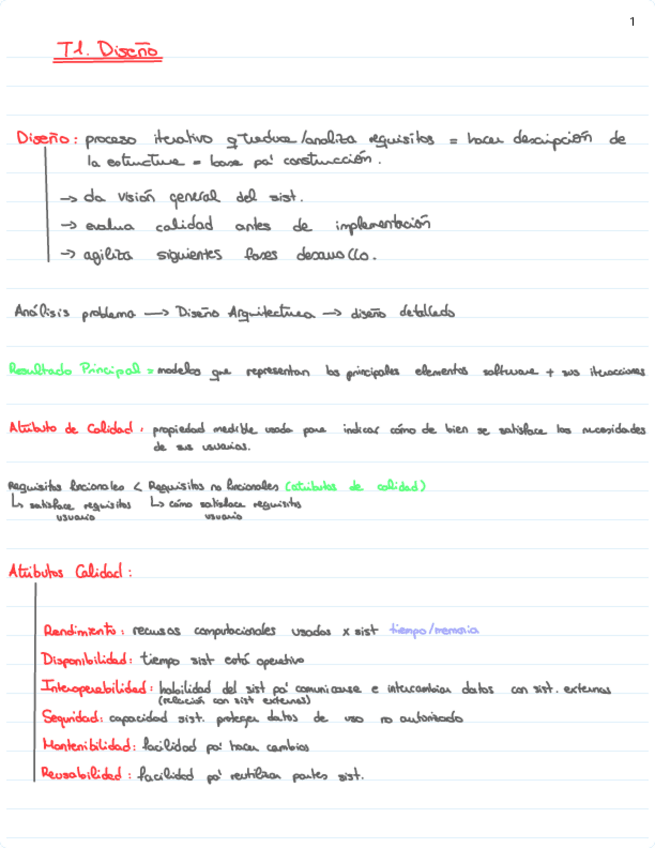 1
T1. Diseño
Diseño: proceso iterativo q traduce/analiza requisitos = hacer descripción de
la estructura = base pa' construcción.
→ da visión general del sist.
→ evalua calidad antes de implementación
→ agiliza siguientes fases desarrollo.
Análisis problema → Diseño Arquitectura → diseño detallado
Resultado Principal = modelos que representan los principales elementos software + sus iteracciones
Atributo de Calidad: propiedad medible usada para indicar cómo de bien se satisface las necesidades
de sus usuarios.
Requisitos funcionales < Requisitos no funcionales (atributos de calidad)
↳ satisface requisitos ↳ cómo satisface requisitos
usuario usuario
Atributos Calidad:
Rendimiento: recursos computacionales usados x sist tiempo/memoria
Disponibilidad: tiempo sist está operativo
Interoperabilidad: habilidad del sist pa' comunicarse e intercambiar datos con sist. externos
(relación con sist externos)
Seguridad: capacidad sist. proteger datos de uso no autorizado
Mantenibilidad: facilidad pa' hacer cambios
Reusabilidad: facilidad pa' reutilizar partes sist.